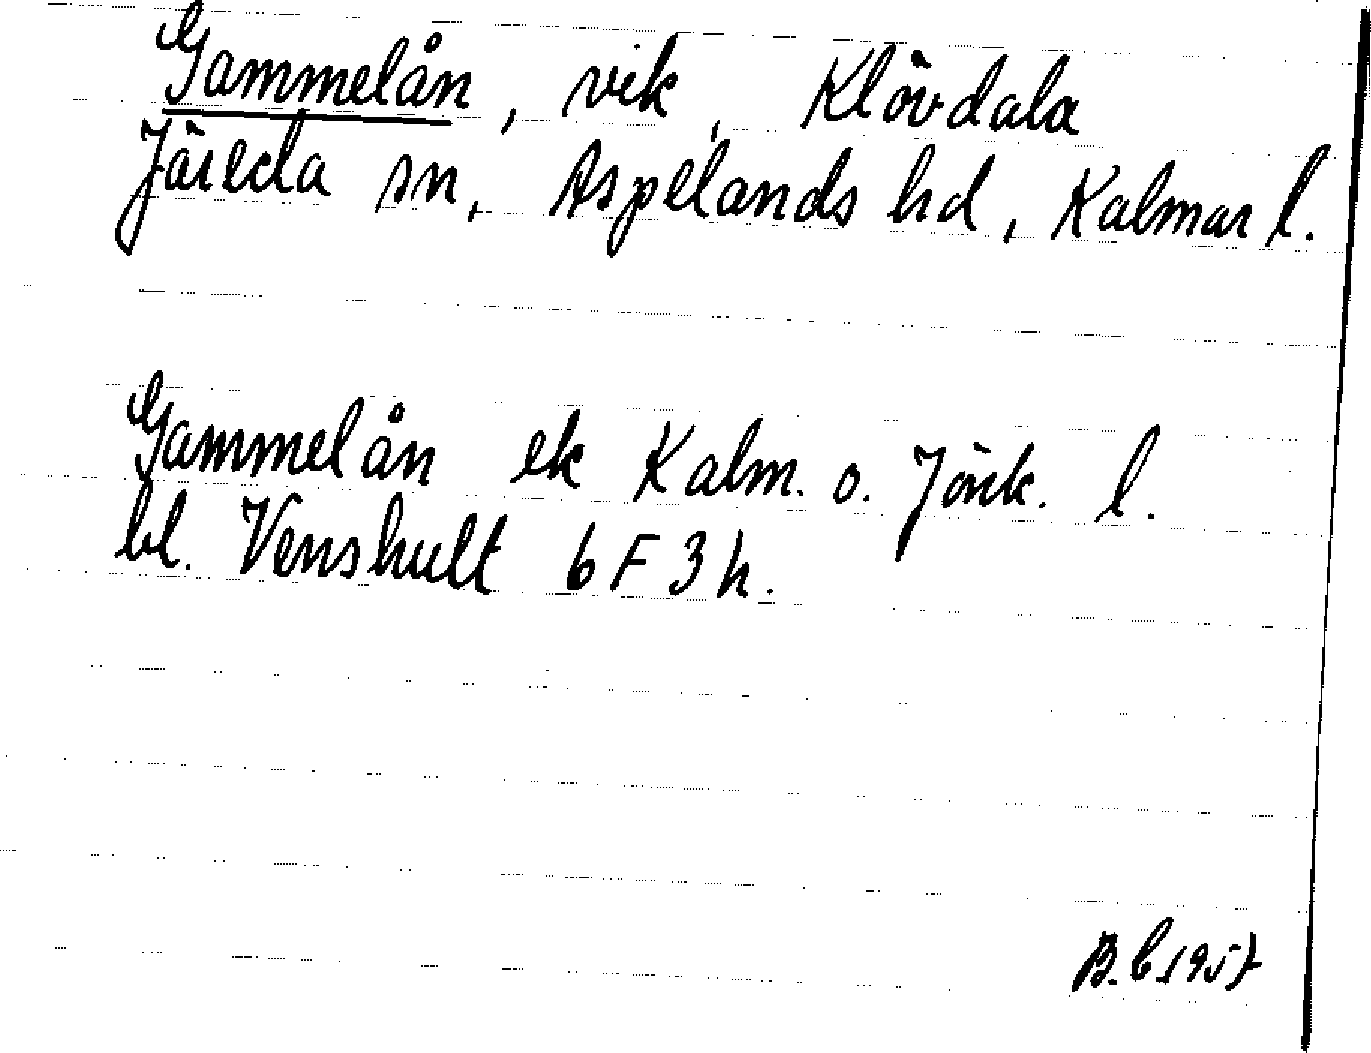 Gammelån, vik, Klövdala
Järeda sn, Aspelands hd, Kalmar l.
Gammelån ek Kalm. o. Jönk. l.
bl. Venshult 6F3h.
1957